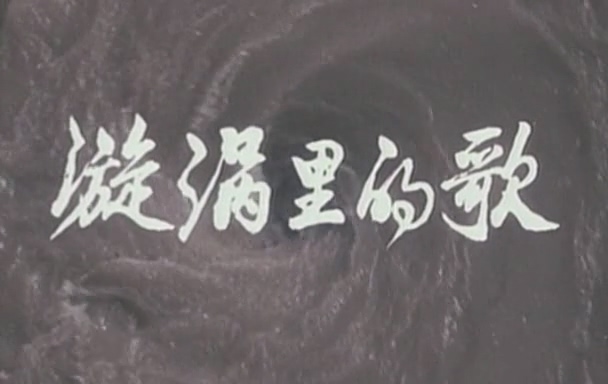 漩涡里的歌